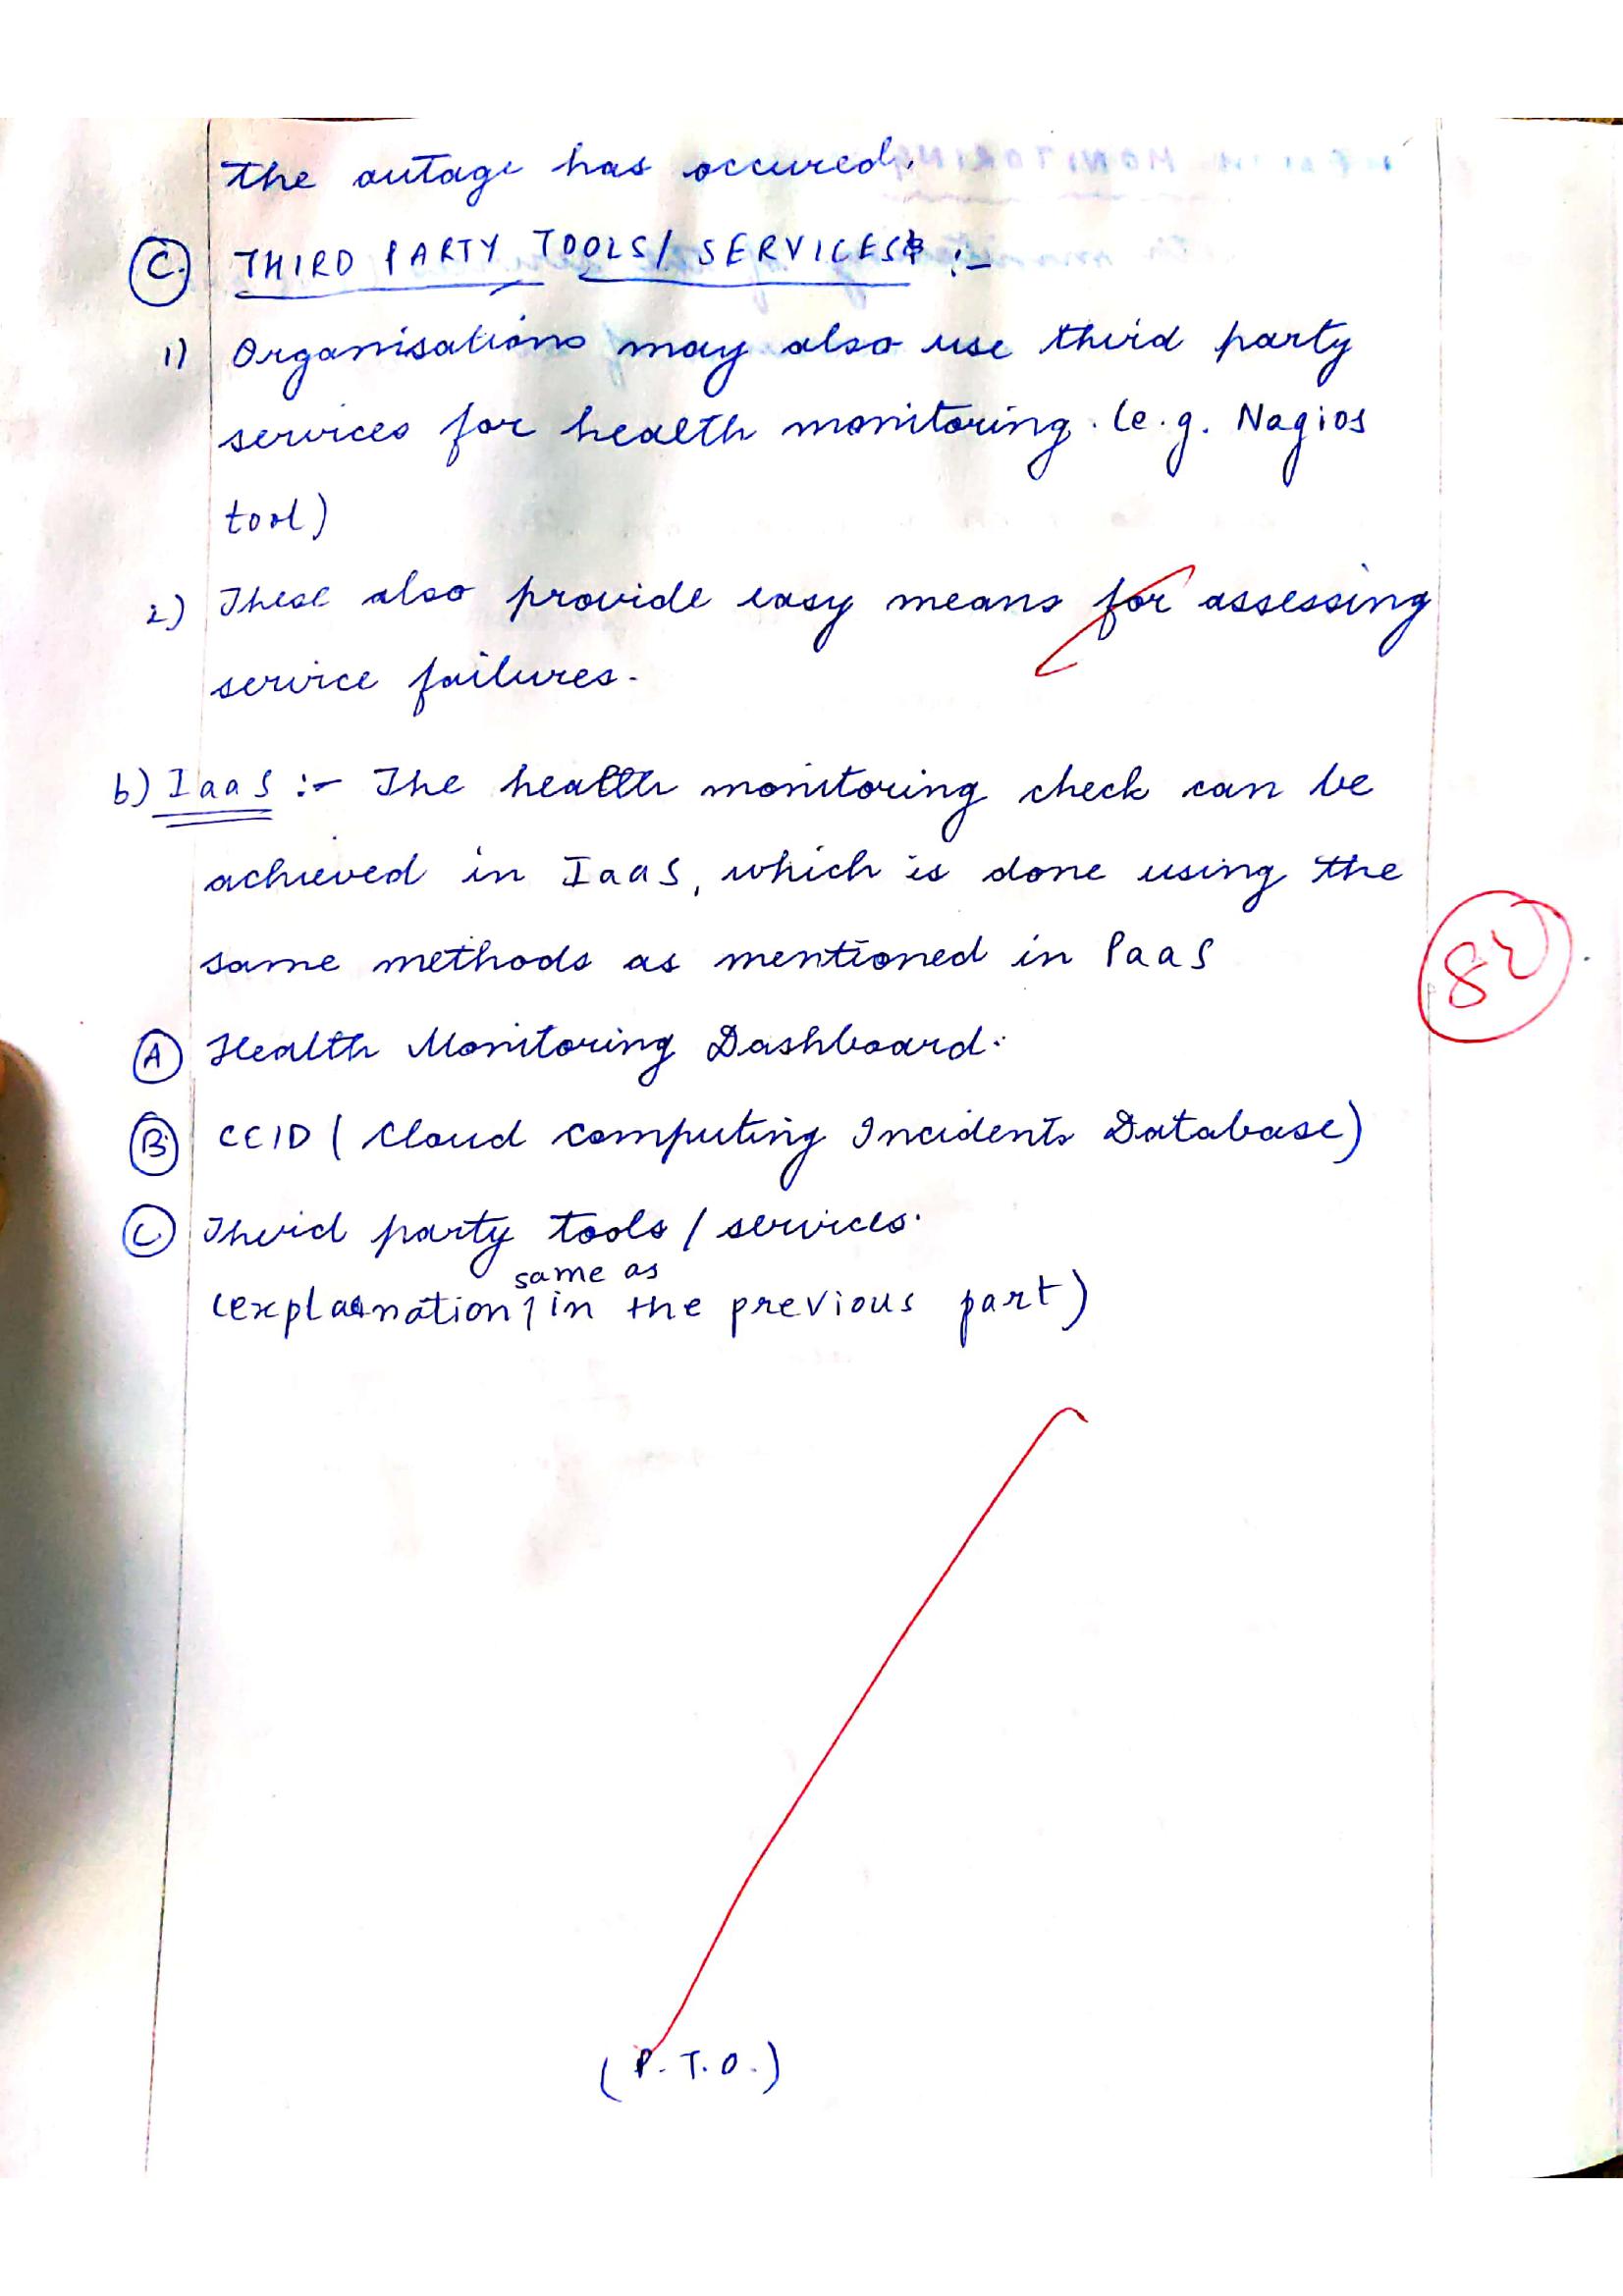 the outage has occured.
C. THIRD PARTY TOOLS/ SERVICES :-
1) Organisations may also use third party
services for health monitoring. (e.g. Nagios
tool)
2) These also provide easy means for assessing
service failures.
b) IaaS :- The health monitoring check can be
achieved in IaaS, which is done using the
same methods as mentioned in PaaS
A Health Monitoring Dashboard.
B. CCID ( Cloud computing Incidents Database)
C. Third party tools / services.
(explanation same as in the previous part)
(P.T.O.)